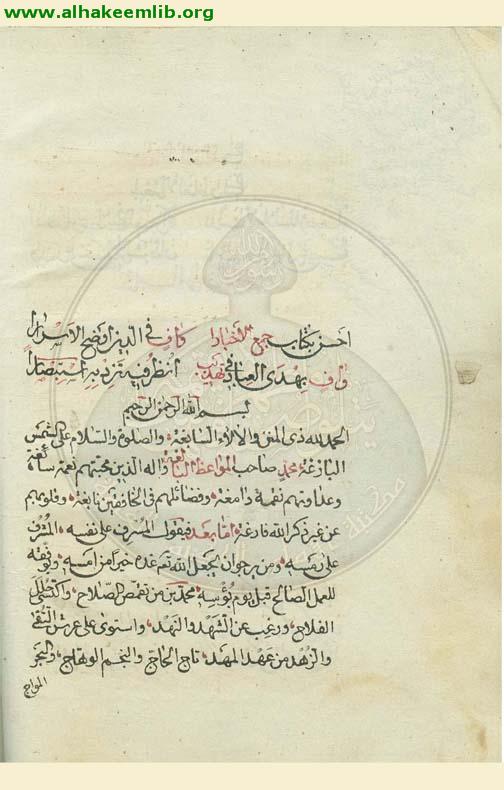 www.alhakeemlib.org
احسن بكتاب جمع الاخبارا كاف في الدين اوضح الاسرارا
واف بهدى العباد في تهذيب انظر فيه تزدد به استبصارا
بسم الله الرحمن الرحيم
الحمد لله ذي المنن والآلاء السابغة والصلوة والسلام على الشمس
البازغة محمد صاحب المواعظ البالغة واله الذين محبتهم نعمة سائغة
وعداوتهم نقمة دامغة وفضائلهم في الخافقين نابغة وقلوبهم
عن غير ذكر الله فارغة اما بعد فيقول المسرف على نفسه المشرف
على رمسه ومن يرجوان يجعل الله تعم غده خيرا من امسه ويوفقه
للعمل الصالح قبل يوم بؤسه محمد بن من تقمص الصلاح واكتسى حلل
الفلاح ورغب عن الشهد والنهد واستوى على عرش التقى
والزهد من عهد المهد تاج الحاج والنجم الوهاج والبحر
المواج